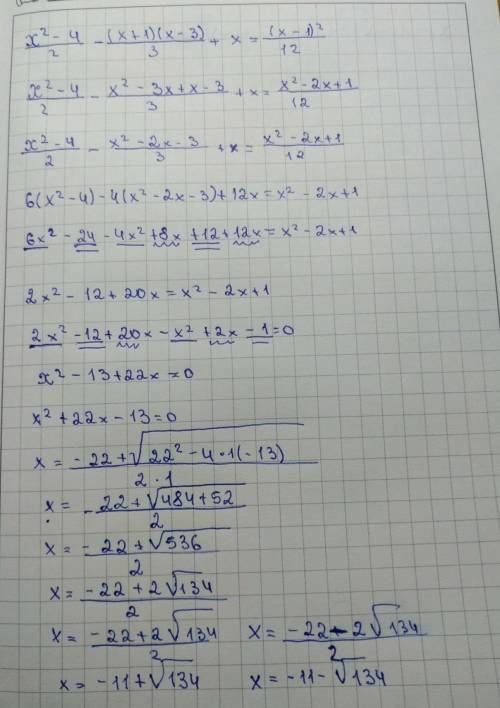 (x² - 4)/2 - ((x+1)(x-3))/3 + x = (x-1)²/12
(x² - 4)/2 - (x² - 3x + x - 3)/3 + x = (x² - 2x + 1)/12
(x² - 4)/2 - (x² - 2x - 3)/3 + x = (x² - 2x + 1)/12
6(x² - 4) - 4(x² - 2x - 3) + 12x = x² - 2x + 1
6x² - 24 - 4x² + 8x + 12 + 12x = x² - 2x + 1
2x² - 12 + 20x = x² - 2x + 1
2x² - 12 + 20x - x² + 2x - 1 = 0
x² - 13 + 22x = 0
x² + 22x - 13 = 0
x = (-22 + √(22² - 4·1(-13)))/(2·1)
x = (-22 + √(484 + 52))/2
x = (-22 + √536)/2
x = (-22 + 2√134)/2
x = (-22 + 2√134)/2 x = (-22 - 2√134)/2
x = -11 + √134 x = -11 - √134